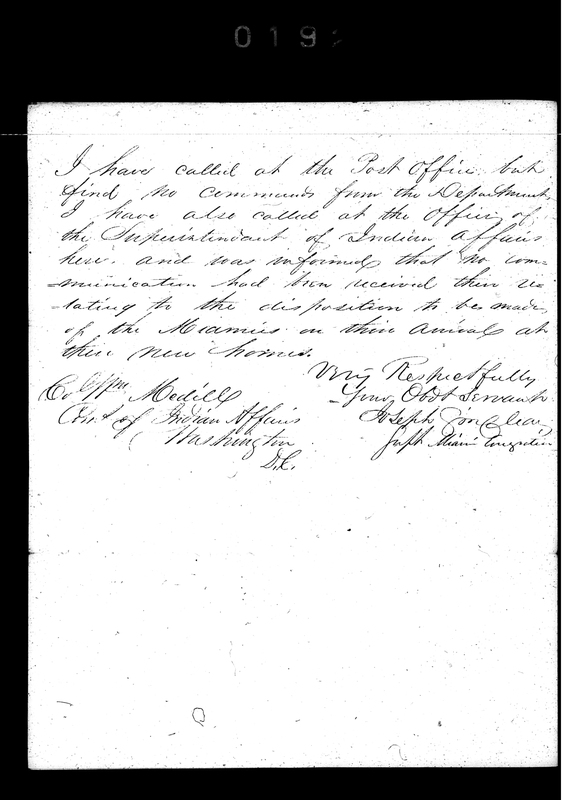 019
I have called at the Post Office but
find no commands from the Department,
I have also called at the Office of
the Superintendant of Indian Affairs
here. and was informed that no com-
-munication had been received there re
-lating to the disposition to be made
of the Miamies on their arrival at
their new homes.
Very Respectfully
Your Obdt Servant
Joseph Sinclear
Supt Miami Emigration
Co Wm Medill
Com't of Indian Affairs
Washington
D.C.